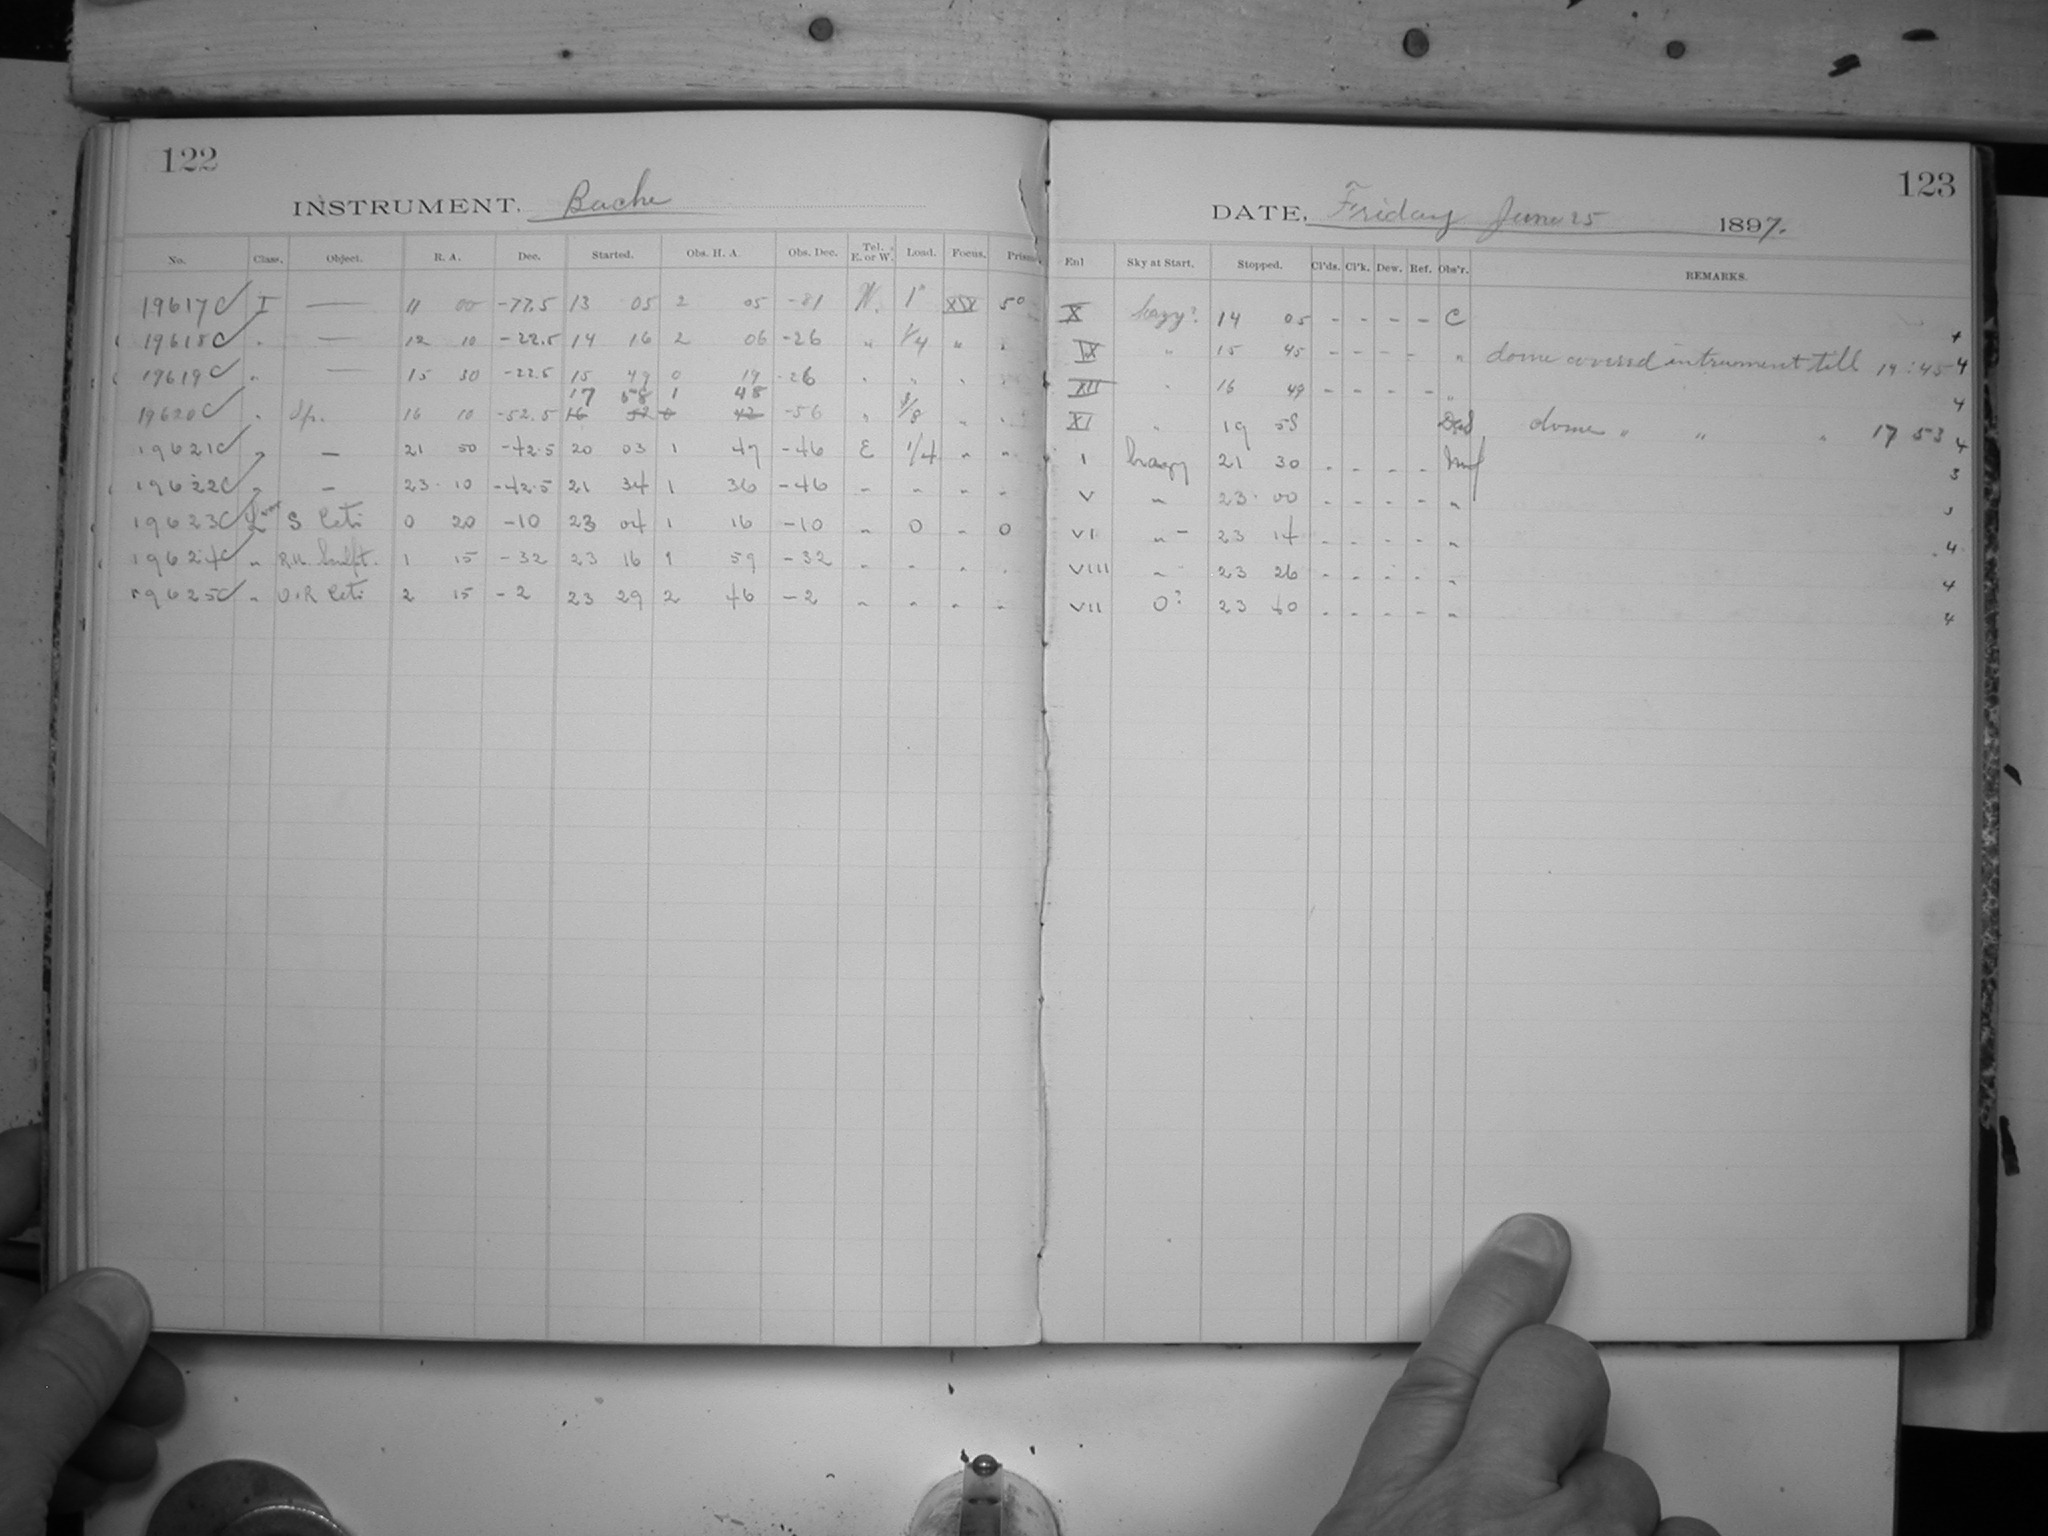 122
INSTRUMENT. Bache
No. Class. Object. R. A. Dec. Started. Obs. H. A. Obs. Dec. Tel. E. or W. Load. Focus. Prism
19617C I — 11 00 -77.5 13 05 2 05 -81 W. 1" XIX 5°
19618C " — 12 10 -22.5 14 16 2 06 -26 " 1/4 " "
19619C " — 15 30 -22.5 15 49 0 19 -26 " " " "
17 58 1 48
19620C " Sp. 16 10 -52.5 16 52 0 42 -56 " 1/8 " "
19621C " — 21 50 -42.5 20 03 1 47 -46 E 1/4 " "
19622C " — 23 10 -42.5 21 34 1 36 -46 " " " "
19623C S Ceti 0 20 -10 23 04 1 16 -10 " 0 " 0
19624C " R.U. Sculpt. 1 15 -32 23 16 1 59 -32 " " " "
19625C " O.R Ceti 2 15 -2 23 29 2 46 -2 " " " "
123
DATE, Friday June 25 1897.
Enl Sky at Start. Stopped. Cl'ds. Cl'k. Dew. Ref. Obs'r. REMARKS.
X hazy? 14 05 - - - - C
IX " 15 45 - - - - " dome covered intrument till 14:45 4
XII " 16 49 - - - - " 4
XI " 19 58 dome " " " 17 53 4
I hazy 21 30 - - - - 3
V " 23 00 - - - - " 3
VI " - 23 14 - - - - " 4
VIII " 23 26 - - - - " 4
VII 0? 23 40 - - - - " 4